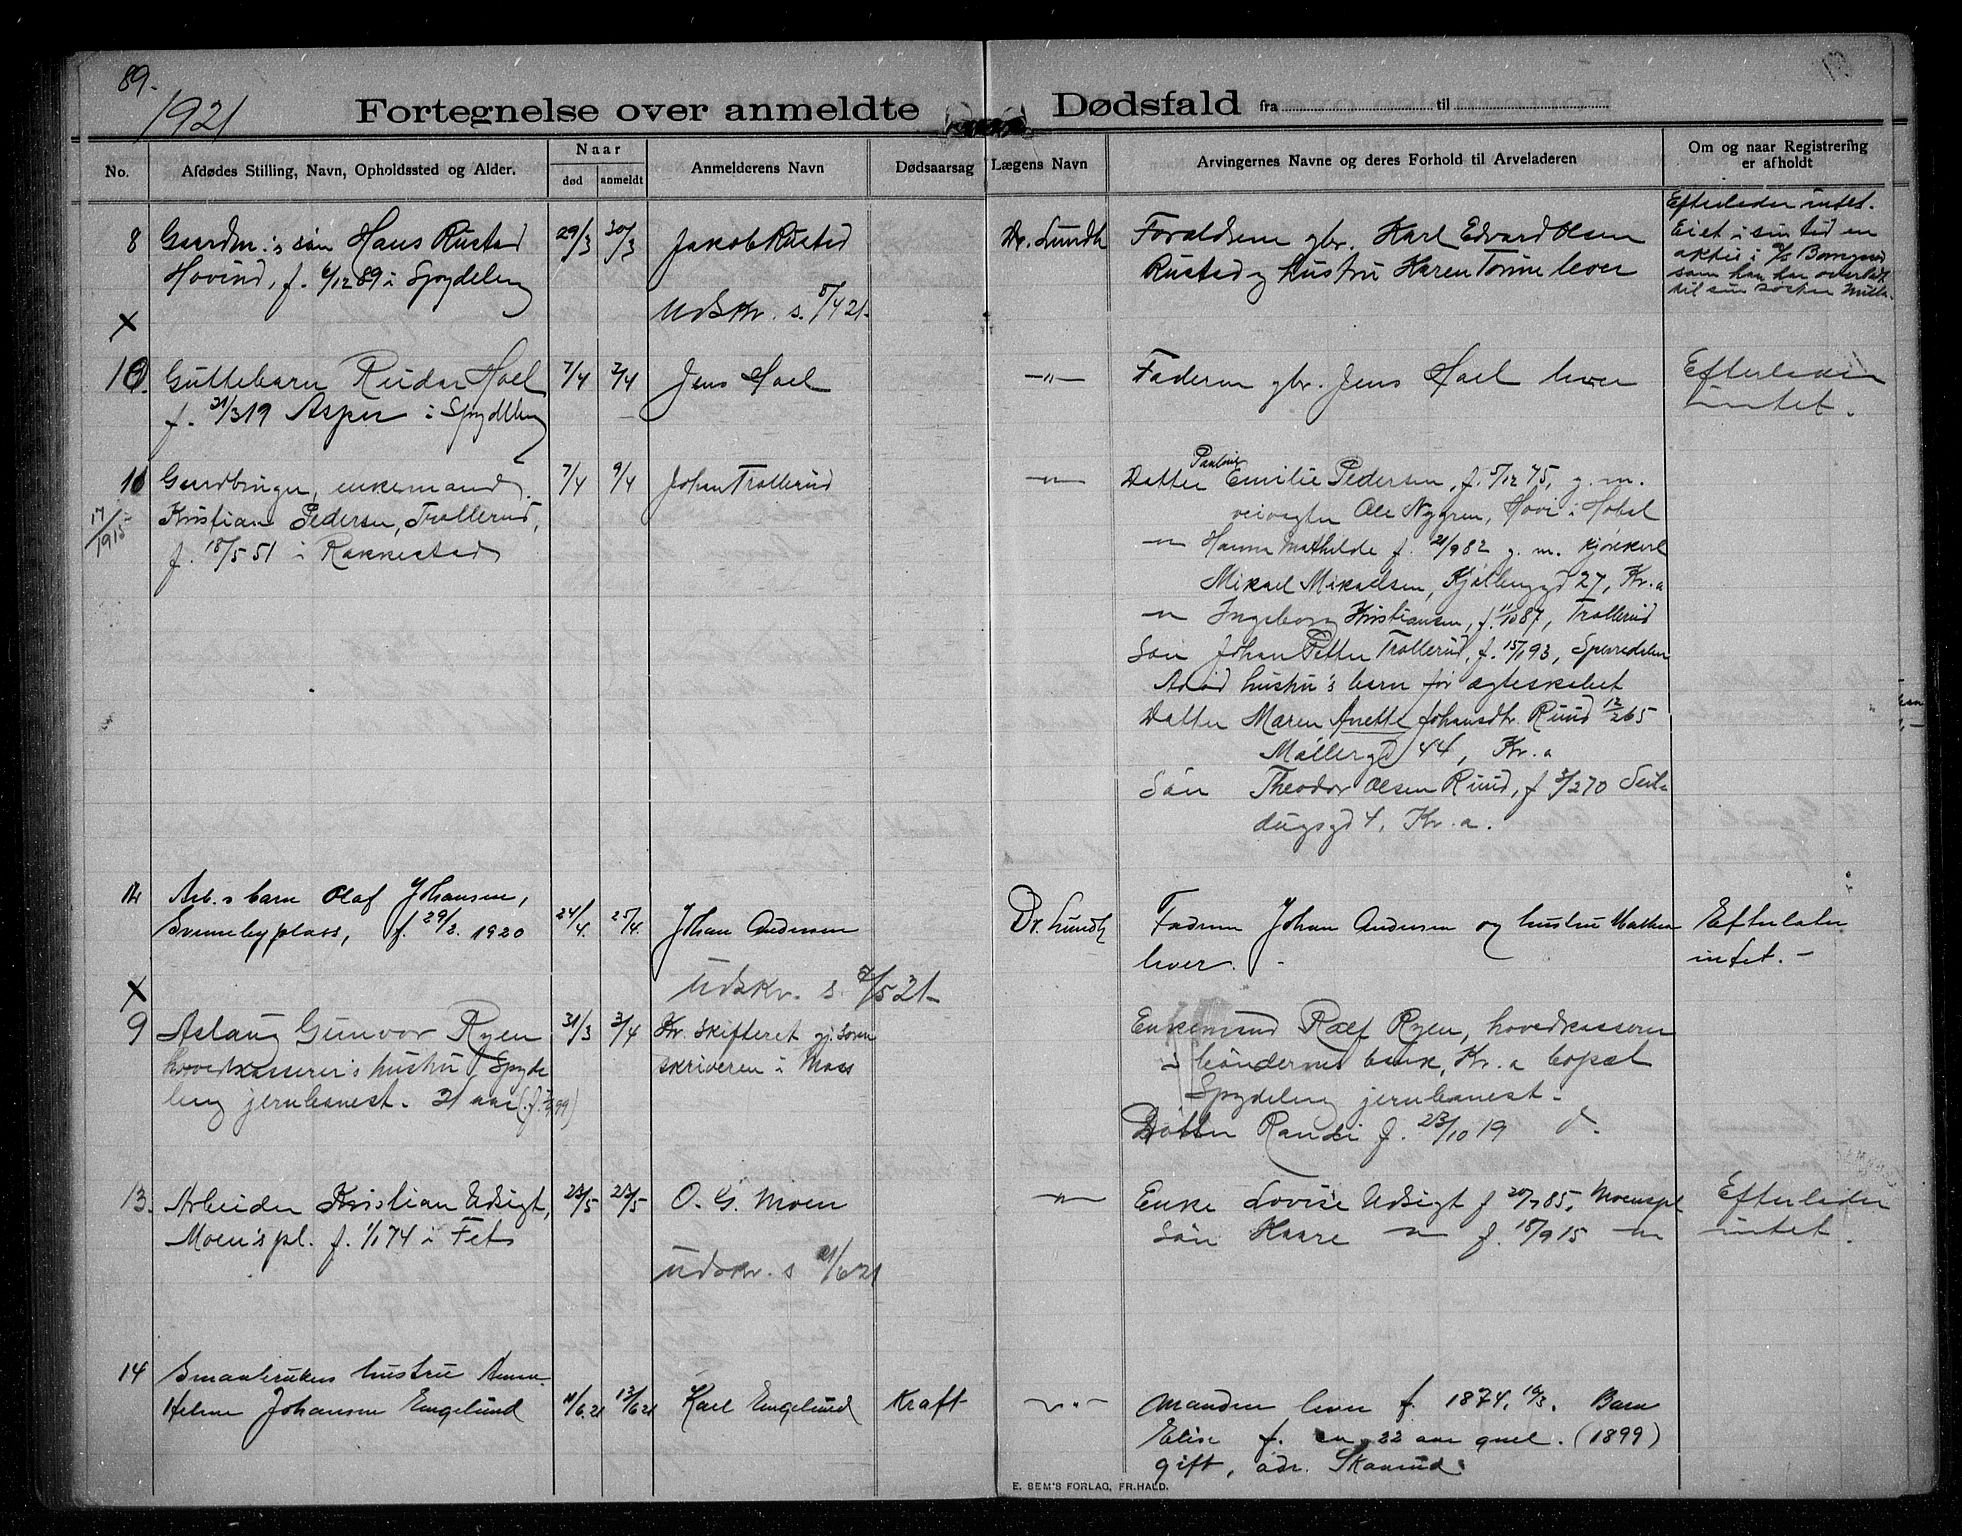 89.
1921
Fortegnelse over anmeldte Dødsfald fra til
No.
Afdødes Stilling, Navn, Opholdssted og Alder.
Naar
død
anmeldt
Anmelderens Navn
Dødsaarsag
Lægens Navn
Arvingernes Navne og deres Forhold til Arveladeren
Om og naar Registrering
er afholdt
8 Gaardm.'s søn Hans Rustad 29/3 30/3 Jakob Rustad Dr. Lundh Forældrene gbr. Karl Edvard Olsen
Hovind, f. 6/12 89 i Spydeberg Rustad og hustru Karen Torine lever
Udskr. s. 5/4 21.
Efterlader intet.
Eiet i sin tid en
aktie i A/S
som han har overladt
til sin søster
X
10. Guttebarn Reidar Hoel 7/4 7/4 Jens Hoel —"— Faderen gbr. Jens Hoel lever Efterlader
f. 31/3 19 Asper i Spydeberg intet.
11 Gaardbruger, enkemand 7/4 9/4 Johan Trollerud —"— Datter Pauline Emilie Pedersen, f. 5/12 75, g.m.
17/1915 Kristian Pedersen, Trollerud, veivogter Ole Nygren, Hovi i Høbøl
f. 18/5 51 i Rakkestad —"— Hanna Mathilde f. 21/9 82 g.m. kjørekarl
Mikael Mikaelsen, Kjølberggd 27, Kr.a
—"— Ingeborg Kristiansen, f. 11/10 87, Trollerud
Søn Johan Petter Trollerud, f. 15/1 93,
Afdød hustru's barn før ægteskabet
Datter Maren Anette Johansdtr. Ruud 12/2 65
Møllergd 44, Kr.a
Søn Theodor Olsen Ruud, f 3/2 70 Seil-
dugsgd 4, Kr.a.
12 Arb.s barn Olaf Johansen, 24/4. 25/4. Johan Andersen Dr. Lundh Faderen Johan Andersen og hustru Mathea Efterlater
f. 29/2. 1920 lever. - intet. -
Udskr. s. 2/5 21-
X
9 Aslaug Gunvor Ryen 31/3 3/4 Kr. skifteret gj. soren- Enkemand Rolf Ryen, hovedkasserer
hovedkasserer's hustru Spyde skriveren i Moss i bøndernes bank, Kr.a bopæl
berg jernbanest. 21 aar Spydeberg jernbanest.
Datter Randi f. 23/10 19 d.
13. Arbeider Kristian Udsigt, 23/5 23/5 O. G. Moen —"— Enke Lovise Udsigt f 20/7 85, Moenspl Efterlader
Moen's pl. f. 1/1 74 i Fet Søn Kaare —"— f. 15/9 15 —"— intet.
Udskr. s 21/6 21
14 Smaabrukers hustru Anna
Helene Johansen Engelund 11/6.21 13/6 21 Karl Engelund Kræft —"— Manden lever f. 1874, 10/3. Barn
Elise f. en 22 aar gmel. (1899)
gift, adr. Skansrud.
E. SEM'S FORLAG, FR.HALD.